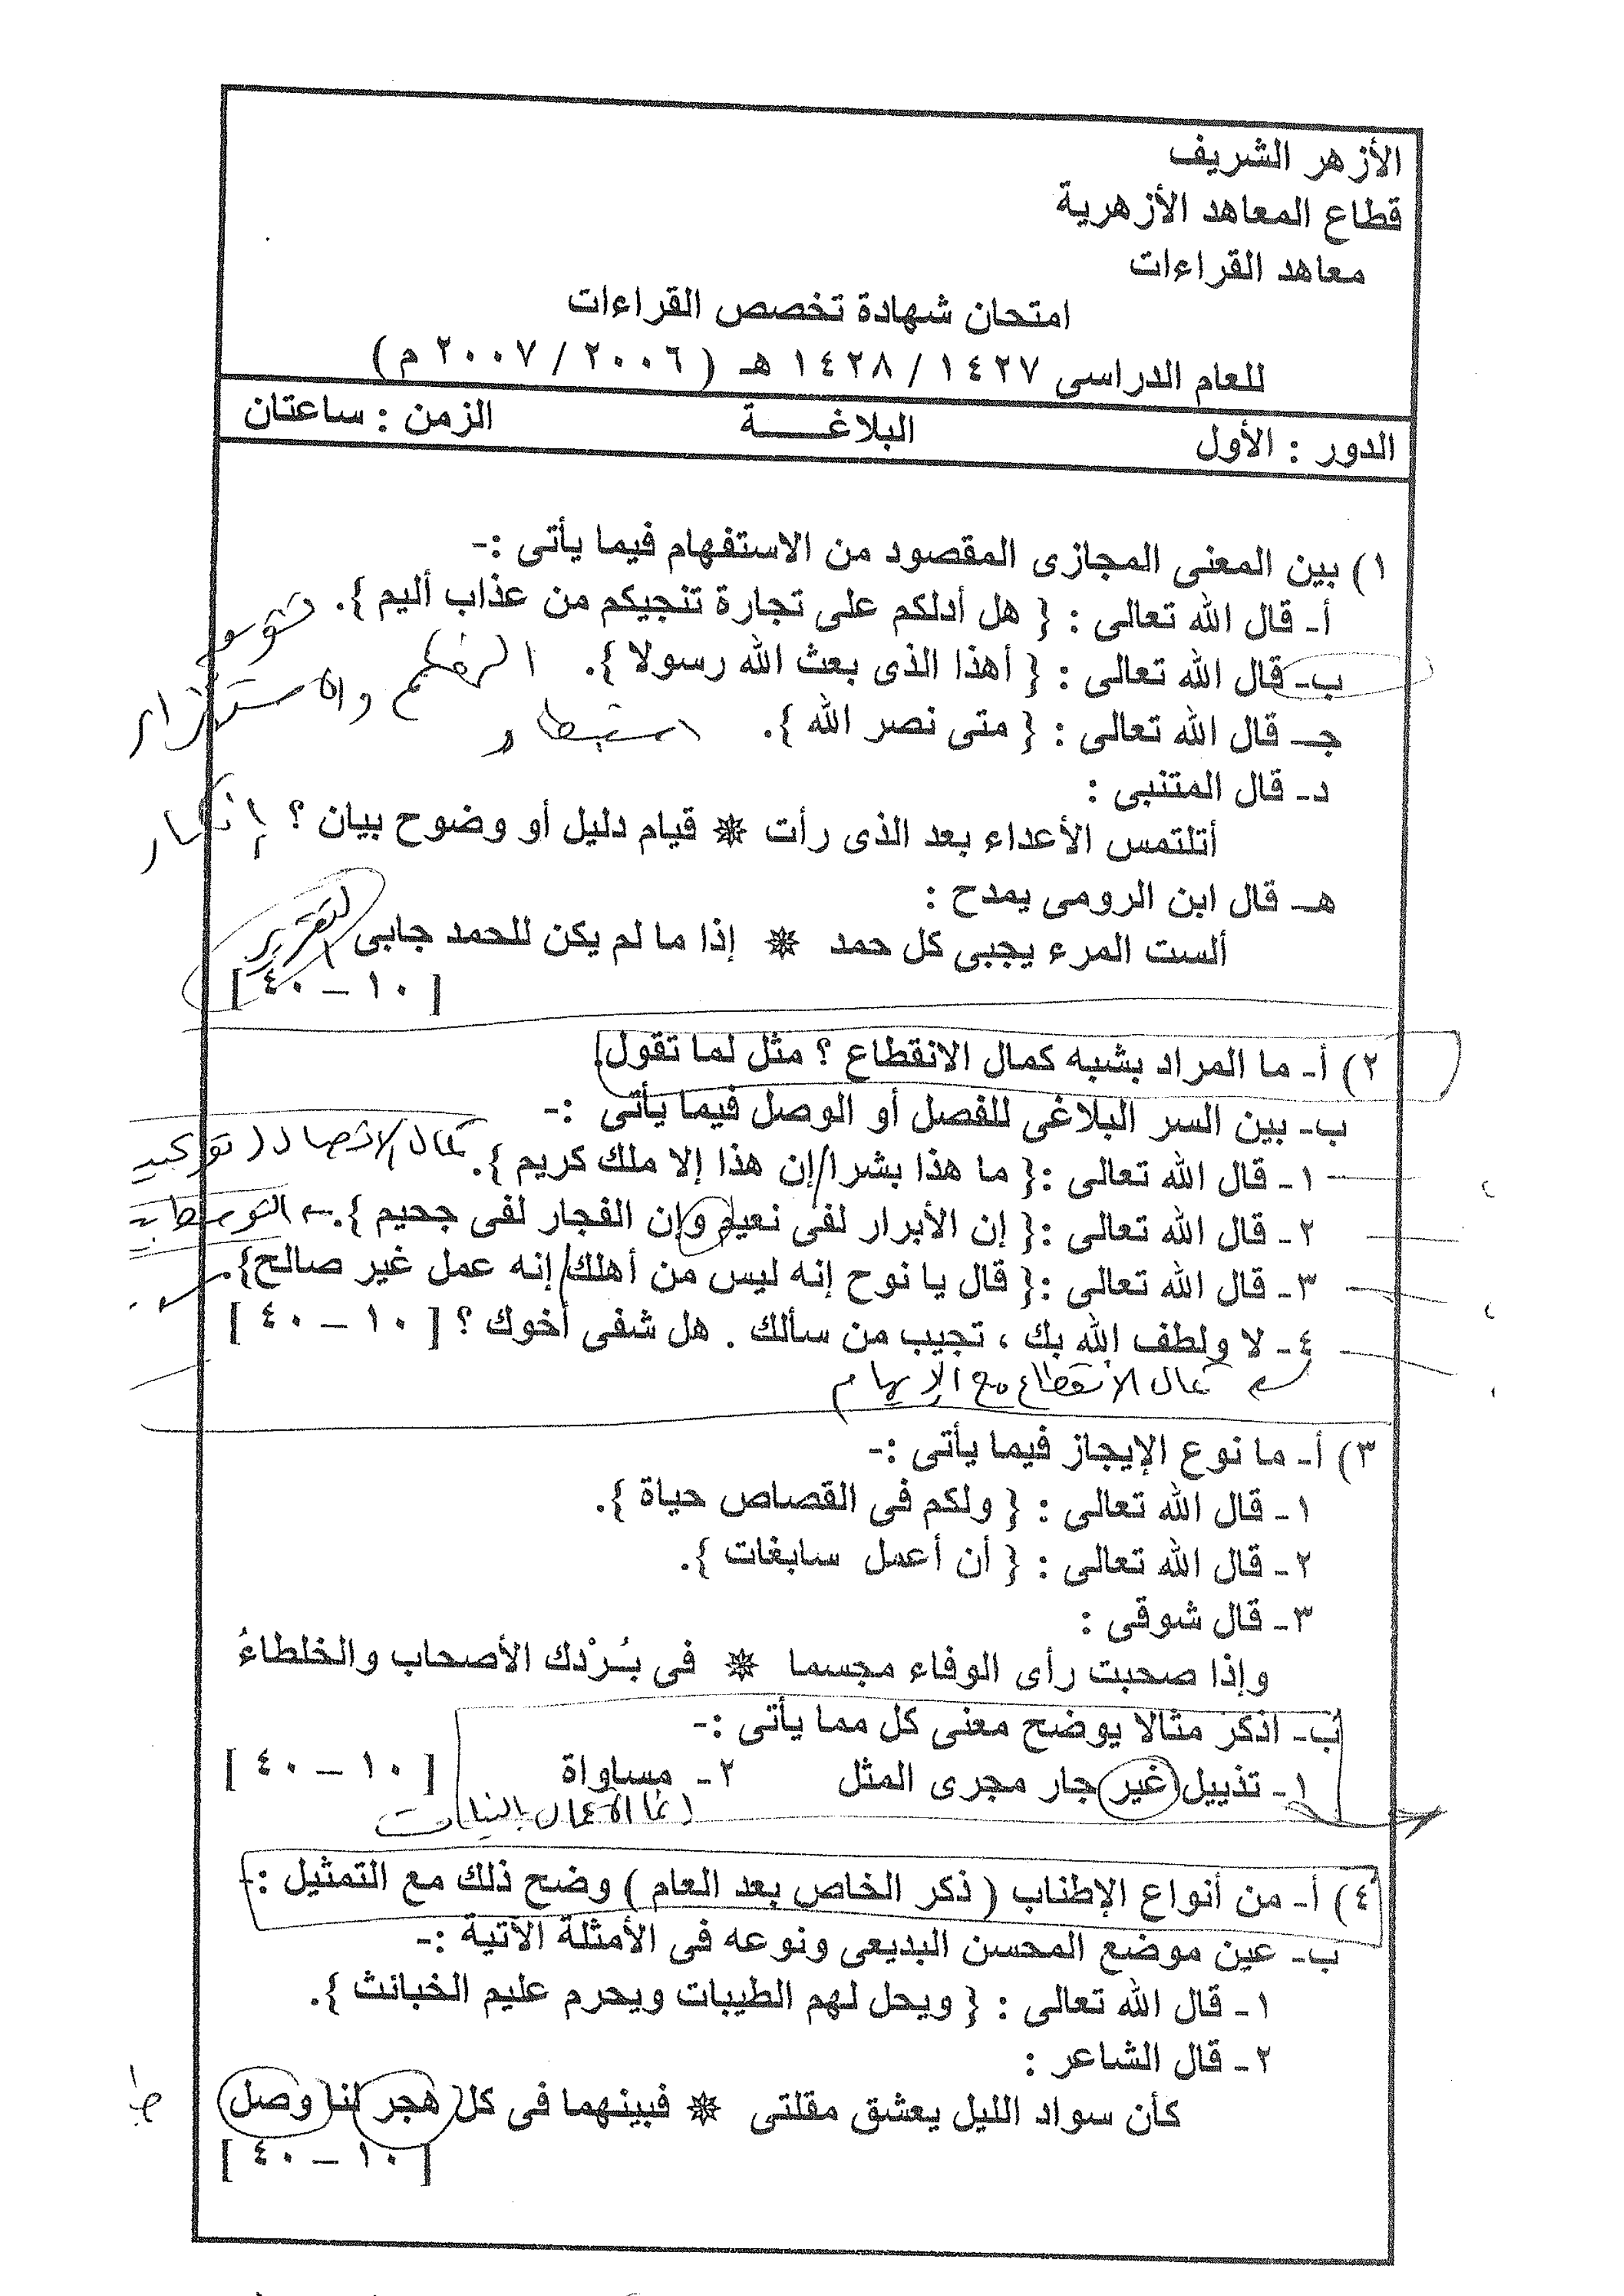 الأزهر الشريف
قطاع المعاهد الأزهرية
معاهد القراءات
امتحان شهادة تخصص القراءات
للعام الدراسى ١٤٢٧ / ١٤٢٨ هـ ( ٢٠٠٦ / ٢٠٠٧ م )
الدور : الأول البلاغـــــة الزمن : ساعتان
١) بين المعنى المجازى المقصود من الاستفهام فيما يأتى :-
أ- قال الله تعالى : { هل أدلكم على تجارة تنجيكم من عذاب أليم }.
ب- قال الله تعالى : { أهذا الذى بعث الله رسولا }.
جـ- قال الله تعالى : { متى نصر الله }. استبطاء
د- قال المتنبى :
أتلتمس الأعداء بعد الذى رأت ❋ قيام دليل أو وضوح بيان ؟ إنكار
هـ- قال ابن الرومى يمدح :
ألست المرء يجبى كل حمد ❋ إذا ما لم يكن للحمد جابى التقرير
[ ١٠ – ٤٠ ]
٢) أ- ما المراد بشبه كمال الانقطاع ؟ مثل لما تقول.
ب- بين السر البلاغى للفصل أو الوصل فيما يأتى :-
١- قال الله تعالى :{ ما هذا بشرا إن هذا إلا ملك كريم }. كمال الاتصال ( توكيد
٢- قال الله تعالى :{ إن الأبرار لفى نعيم وإن الفجار لفى جحيم }. التوسط بـ
٣- قال الله تعالى :{ قال يا نوح إنه ليس من أهلك إنه عمل غير صالح}.
٤- لا ولطف الله بك ، تجيب من سألك . هل شفى أخوك ؟ [ ١٠ – ٤٠ ]
كمال الانقطاع مع الإيهام
٣) أ- ما نوع الإيجاز فيما يأتى :-
١- قال الله تعالى : { ولكم فى القصاص حياة }.
٢- قال الله تعالى : { أن أعمل سابغات }.
٣- قال شوقى :
وإذا صحبت رأى الوفاء مجسما ❋ فى بُـرْدك الأصحاب والخلطاءُ
ب- اذكر مثالا يوضح معنى كل مما يأتى :-
١- تذييل غير جار مجرى المثل ٢- مساواة [ ١٠ – ٤٠ ]
إنما الأعمال بالنيات
٤) أ- من أنواع الإطناب ( ذكر الخاص بعد العام ) وضح ذلك مع التمثيل :-
ب- عين موضع المحسن البديعى ونوعه فى الأمثلة الآتية :-
١- قال الله تعالى : { ويحل لهم الطيبات ويحرم عليم الخبائث }.
٢- قال الشاعر :
كأن سواد الليل يعشق مقلتى ❋ فبينهما فى كل هجر لنا وصل
[ ١٠ – ٤٠ ]